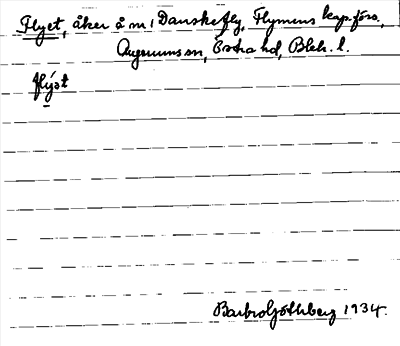 Flyet, åker å nr 1 Danskefly, Flymens kap.förs.,
Augerums sn, Östra hd, Blek. l.
flýst
Barbro Göthberg 1934.